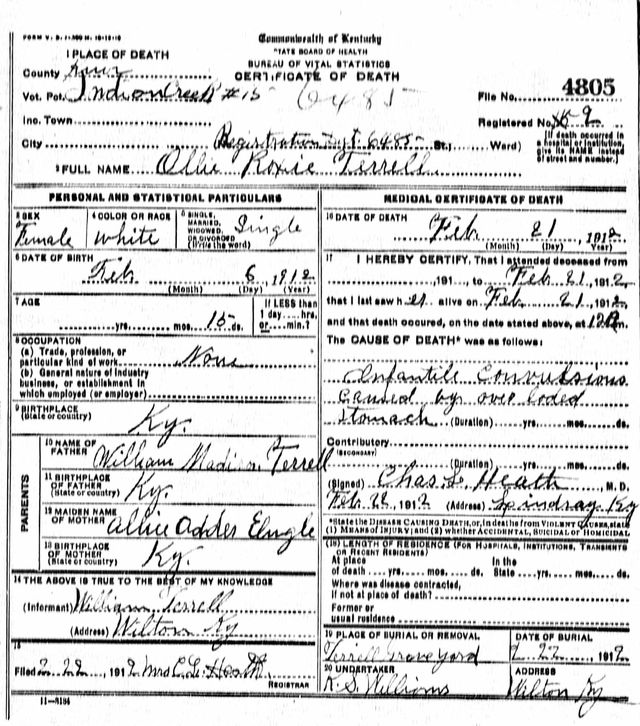 FORM V. S.
Commonwealth of Kentucky
STATE BOARD OF HEALTH
BUREAU OF VITAL STATISTICS
CERTIFICATE OF DEATH
1 PLACE OF DEATH
County Knox
Vot. Pct. Indian Creek #15
6485
File No. 4805
Inc. Town
Registered No. 9
City Registration Dist. 6485 St.; Ward)
[If death occurred in a hospital or institution, give its NAME instead of street and number.]
2 FULL NAME Ollie Roxie Terrell
PERSONAL AND STATISTICAL PARTICULARS
3 SEX Female
4 COLOR OR RACE White
5 SINGLE, MARRIED, WIDOWED, OR DIVORCED (Write the word) Single
6 DATE OF BIRTH
Feb 6, 1912
(Month) (Day) (Year)
7 AGE
yrs. mos. 15 ds.
If LESS than 1 day hrs. or min.?
8 OCCUPATION
(a) Trade, profession, or particular kind of work None
(b) General nature of industry business, or establishment in which employed (or employer)
9 BIRTHPLACE
(State or country) Ky.
PARENTS
10 NAME OF FATHER William Madison Terrell
11 BIRTHPLACE OF FATHER
(State or country) Ky.
12 MAIDEN NAME OF MOTHER
13 BIRTHPLACE OF MOTHER
(State or country) Ky.
14 THE ABOVE IS TRUE TO THE BEST OF MY KNOWLEDGE
(Informant) William Terrell
(Address) Wilton Ky
15
Filed 2-22, 1912 Mrs C. L. Heath
REGISTRAR
MEDICAL CERTIFICATE OF DEATH
16 DATE OF DEATH
Feb 21, 1912
(Month) (Day) Year
17 I HEREBY CERTIFY, That I attended deceased from
, 191 , to Feb 21, 1912
that I last saw her alive on Feb 21, 1912
and that death occured, on the date stated above, at 12 m.
The CAUSE OF DEATH* was as follows:
Infantile Convulsions
caused by over loded
Stomach (Duration) yrs. mos. ds.
Contributory
(SECONDARY)
(Duration) yrs. mos. ds.
(Signed) Chas L. Heath, M. D.
Feb 22, 1912 (Address) Lindsay Ky
*State the DISEASE CAUSING DEATH, or, in deaths from VIOLENT CAUSES, state (1) MEANS OF INJURY; and (2) whether ACCIDENTAL, SUICIDAL or HOMICIDAL
(18) LENGTH OF RESIDENCE (FOR HOSPITALS, INSTITUTIONS, TRANSIENTS OR RECENT RESIDENTS)
At place of death yrs. mos. ds. In the State yrs. mos. ds.
Where was disease contracted,
if not at place of death?
Former or
usual residence
19 PLACE OF BURIAL OR REMOVAL
Terrell Grave yard
DATE OF BURIAL
2-22, 1912
20 UNDERTAKER
K. S. Williams
ADDRESS
Wilton Ky
11-8184